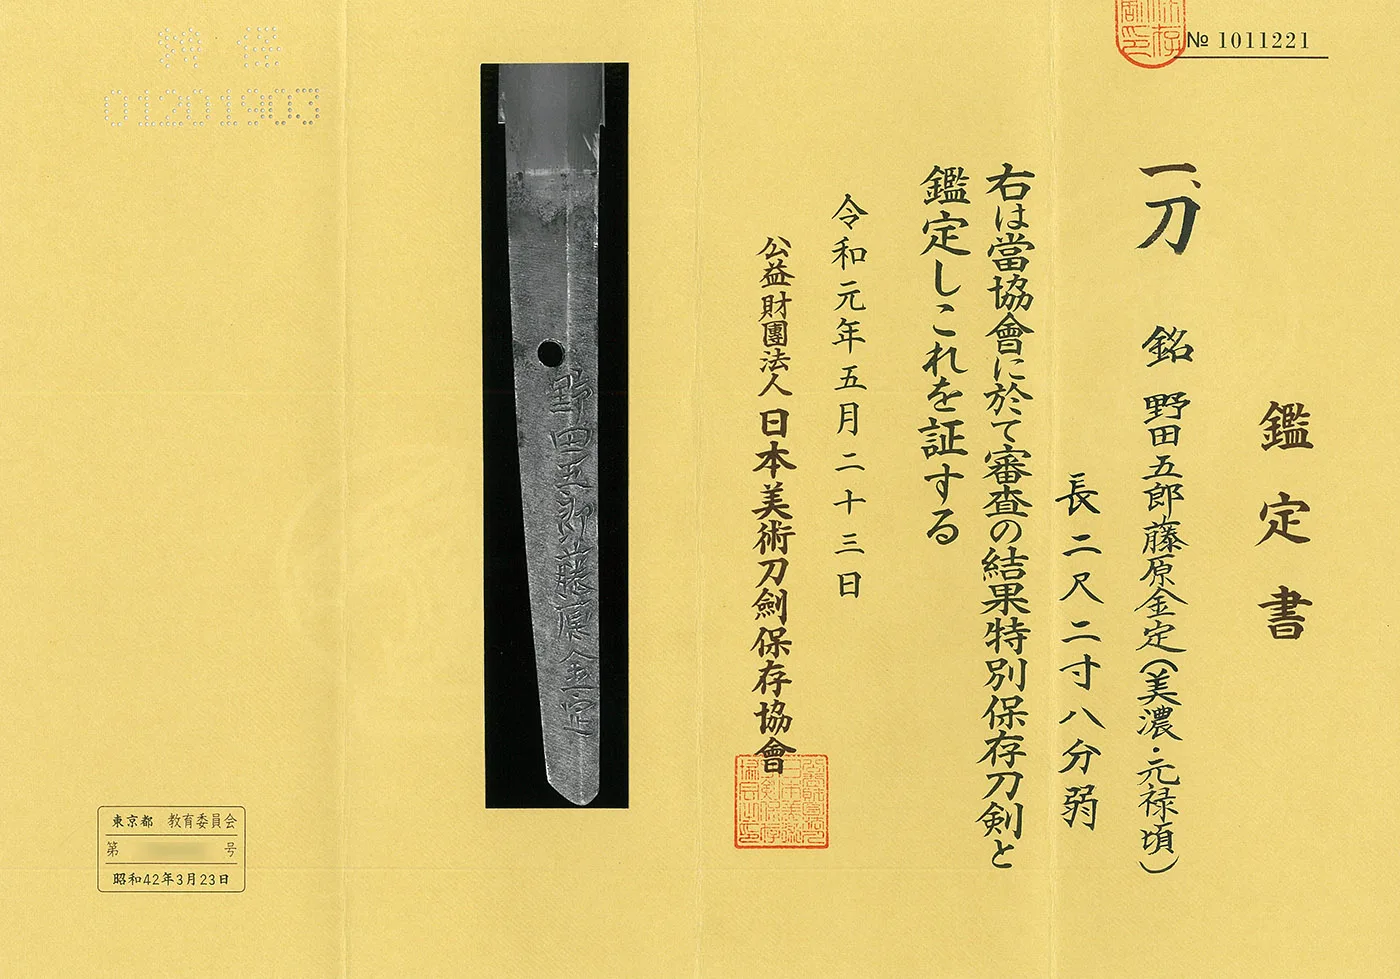 № 1011221
鑑定書
一、刀 銘 野田五郎藤原金定(美濃・元禄頃)
長二尺二寸八分弱
右は當協會に於て審査の結果特別保存刀剣と
鑑定しこれを証する
令和元年五月二十三日
公益財團法人 日本美術刀劍保存協會
野田五郎藤原金定
特保
01201903
東京都 教育委員会
第 号
昭和42年3月23日